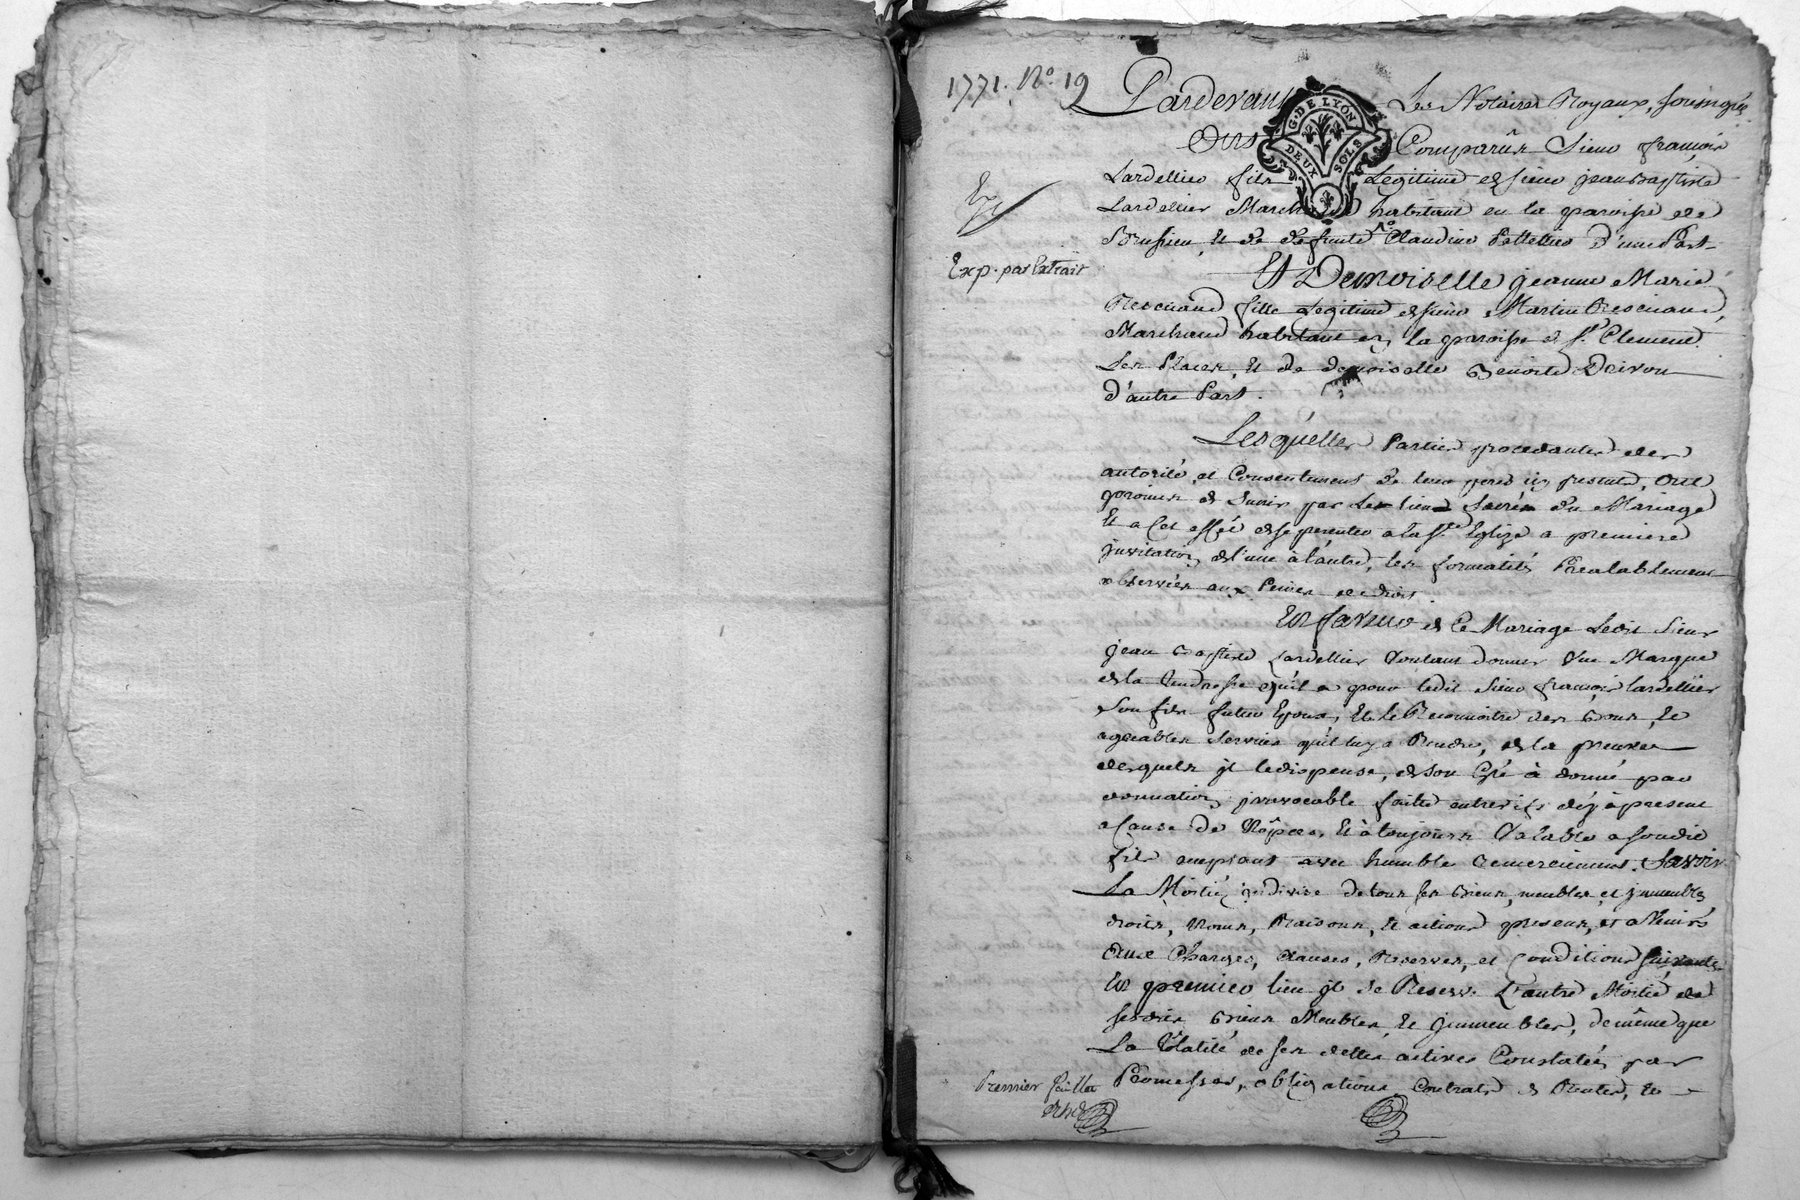 1771. N.º 19
Pardevant Les Notaires Royaux, soussignés
G. DE LYON
DEUX SOLS
Comparûs Sieur françois
Lardellier fils Légitime de sieur jean Baptiste
Lardellier Marchand habitant en la paroisse de
Brussieu, et de defunte Claudine Pelletier d'une Part
Exp. par Extrait
Et Demoiselle jeanne Marie
fille Legitime de sieur Martin
Marchand habitant en la paroisse de St. Clement
Les Places, et de demoiselle Benoite
d'autre Part.
Lesquelles Parties procedantes des
autorité, et Consentement de leur pere icy present, ont
promis de s'unir par les liens Sacrés du Mariage
Et a Cet effet de se presenter a la Ste. Eglize a premiere
jnvitation de l'une à l'autre, les formalités Prealablement
observées aux Peines de droit.
En faveur de Ce Mariage Ledit Sieur
jean Baptiste Lardellier Voulant donner Une Marque
de la tendresse qu'il a pour ledit Sieur françois lardellier
Son fils futur Epoux, Et le Reconnoitre des Bons, et
agreables Services qu'il luy a Rendu, de la preuve
desquels jl le dispense, de son gré à donné par
donnation jrrevocable faitte entre vifs dez à present
a Cause de Nôpces, Et à toujours Valable a sondit
fils acceptant avec humble remerciement. Savoir
La Moitié jndivise de tous ses Biens, meubles, et jmmeubles,
droits, Noms, Raisons, et actions presens, et a Venirs
aux Charges, clauses, Reserves, et Conditions suivantes
En premier lieu jl se Reserve L'autre Moitié de
sesdits Biens Meubles, et jmmeubles, de même que
La Totalité de ses dettes actives Constatées par
Promesses, obligations, Contrats de Rentes, et
Premier feuillet